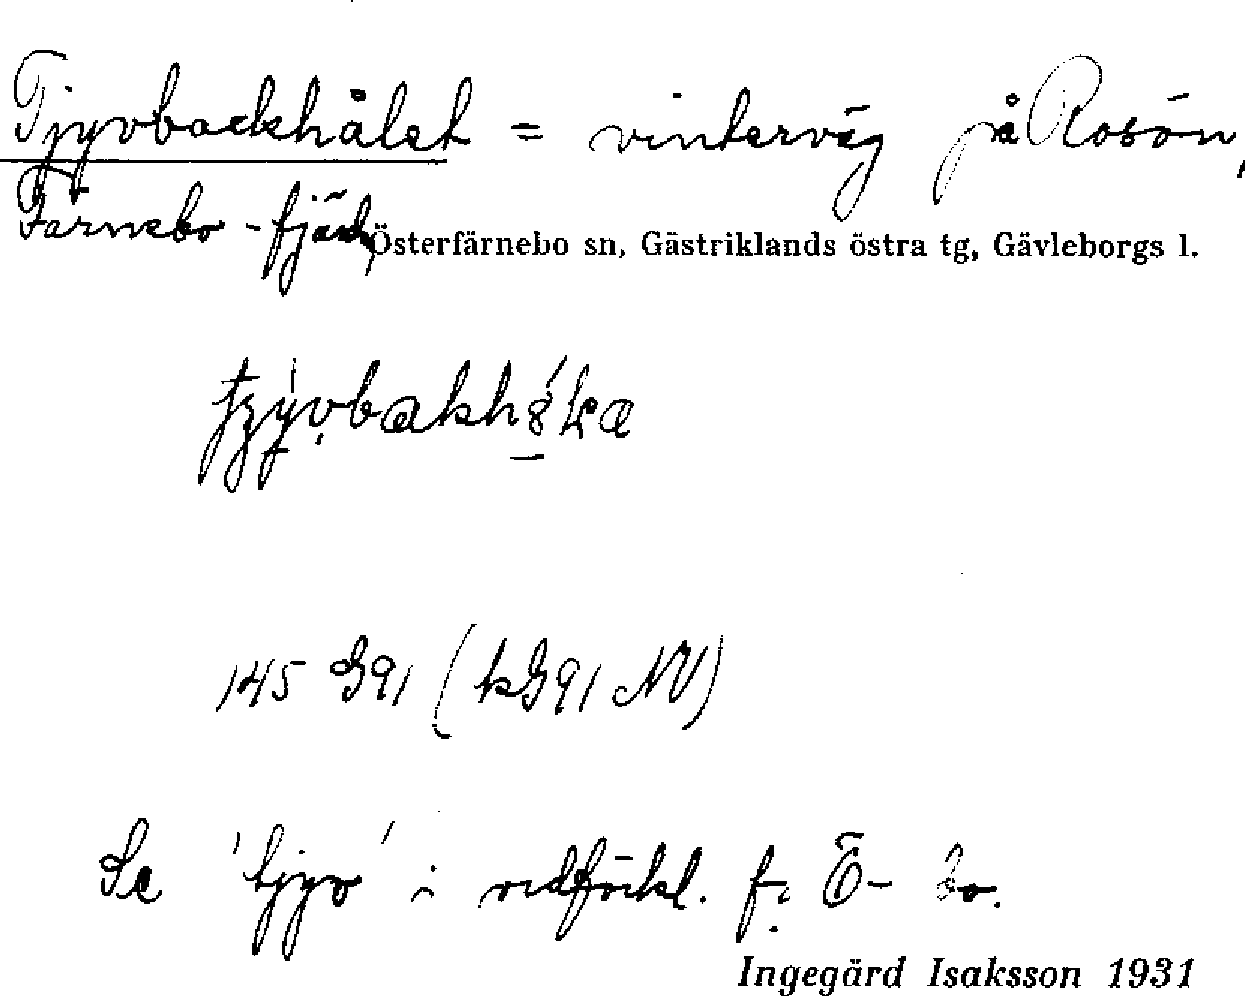 Tjyvbackhålet = vinterväg på Rosön,
Färnebo-fjärd,
Österfärnebo sn, Gästriklands östra tg, Gävleborgs l.
145 G91 (kG91 NV)
Se 'tjyv' i ordförkl. f. Ö-bo.
Ingegärd Isaksson 1931